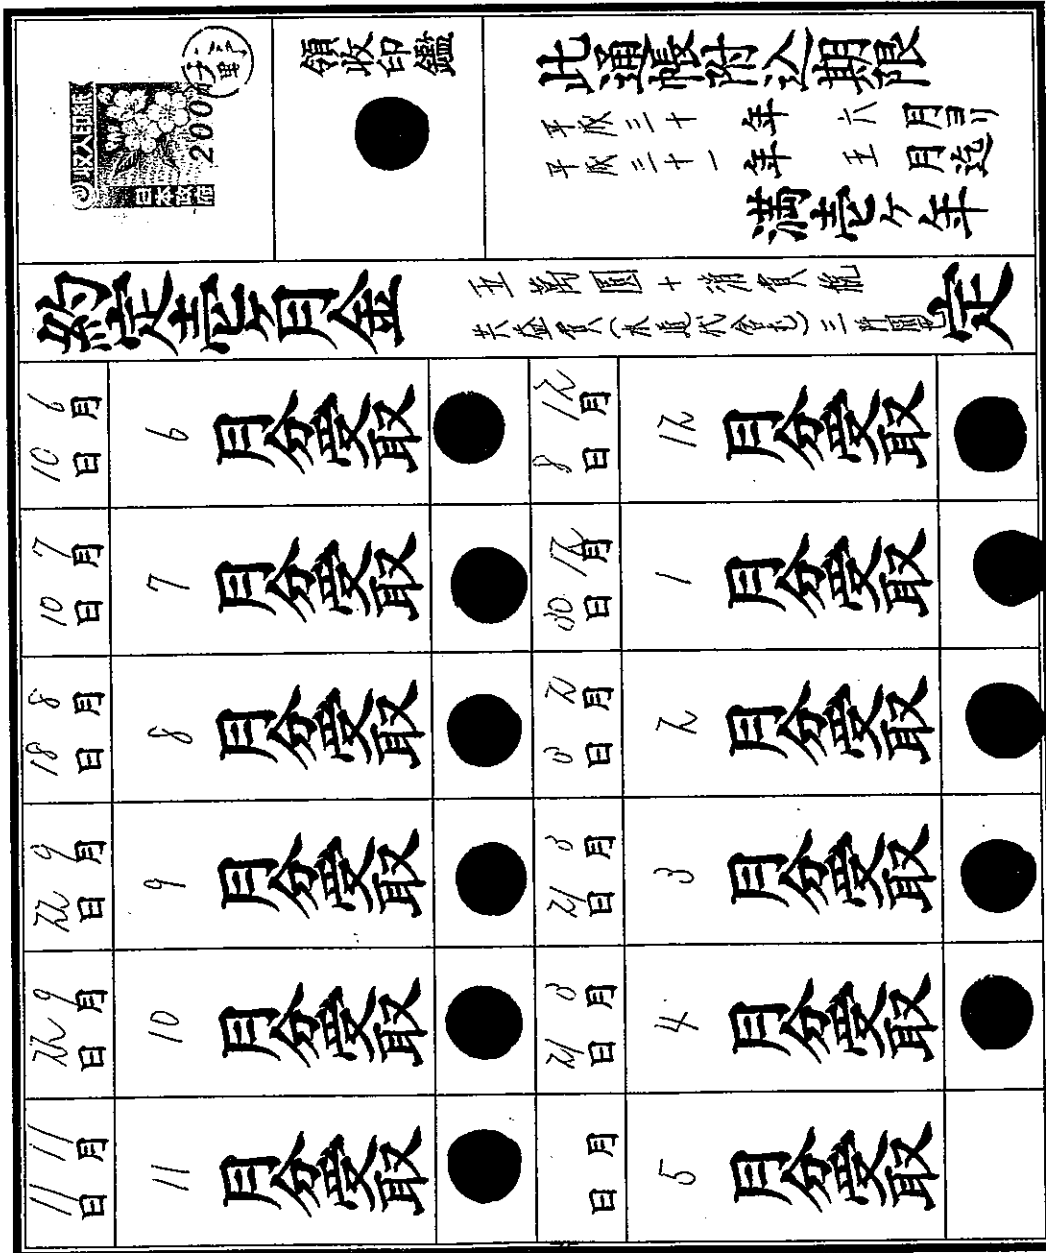 此通帳附込期限
平成三十年六月ヨリ
平成三十一年五月迄
満壱ヶ年
領收印鑑
収入印紙
200円
日本政府
約定壱ヶ月金
五萬圓+消費税
共益費(水道代含む)三阡圓也
定
6月10日 6月分受取
7月10日 7月分受取
8月18日 8月分受取
9月22日 9月分受取
9月22日 10月分受取
11月11日 11月分受取
12月8日 12月分受取
12月30日 1月分受取
2月3日 2月分受取
3月21日 3月分受取
3月21日 4月分受取
月 日 5月分受取